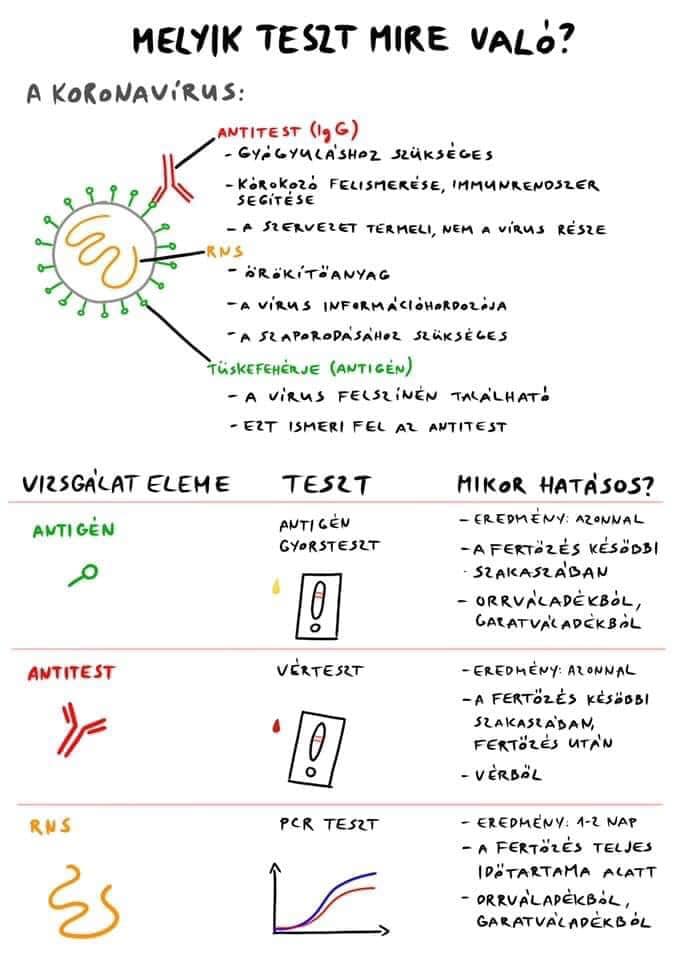 MELYIK TESZT MIRE VALÓ?
A KORONAVÍRUS:
ANTITEST (IgG)
- GYÓGYULÁSHOZ SZÜKSÉGES
- KÓROKOZÓ FELISMERÉSE, IMMUNRENDSZER
SEGÍTÉSE
- A SZERVEZET TERMELI, NEM A VÍRUS RÉSZE
RNS
- ÖRÖKÍTŐANYAG
- A VÍRUS INFORMÁCIÓHORDOZÓJA
- A SZAPORODÁSÁHOZ SZÜKSÉGES
TÜSKEFEHÉRJE (ANTIGÉN)
- A VÍRUS FELSZÍNÉN TALÁLHATÓ
- EZT ISMERI FEL AZ ANTITEST
VIZSGÁLAT ELEME TESZT MIKOR HATÁSOS?
ANTIGÉN
ANTIGÉN
GYORSTESZT
- EREDMÉNY: AZONNAL
- A FERTŐZÉS KÉSŐBBI
SZAKASZÁBAN
- ORRVÁLADÉKBÓL,
GARATVÁLADÉKBÓL
ANTITEST
VÉRTESZT
- EREDMÉNY: AZONNAL
- A FERTŐZÉS KÉSŐBBI
SZAKASZÁBAN,
FERTŐZÉS UTÁN
- VÉRBŐL
RNS
PCR TESZT
- EREDMÉNY: 1-2 NAP
- A FERTŐZÉS TELJES
IDŐTARTAMA ALATT
- ORRVÁLADÉKBÓL,
GARATVÁLADÉKBÓL